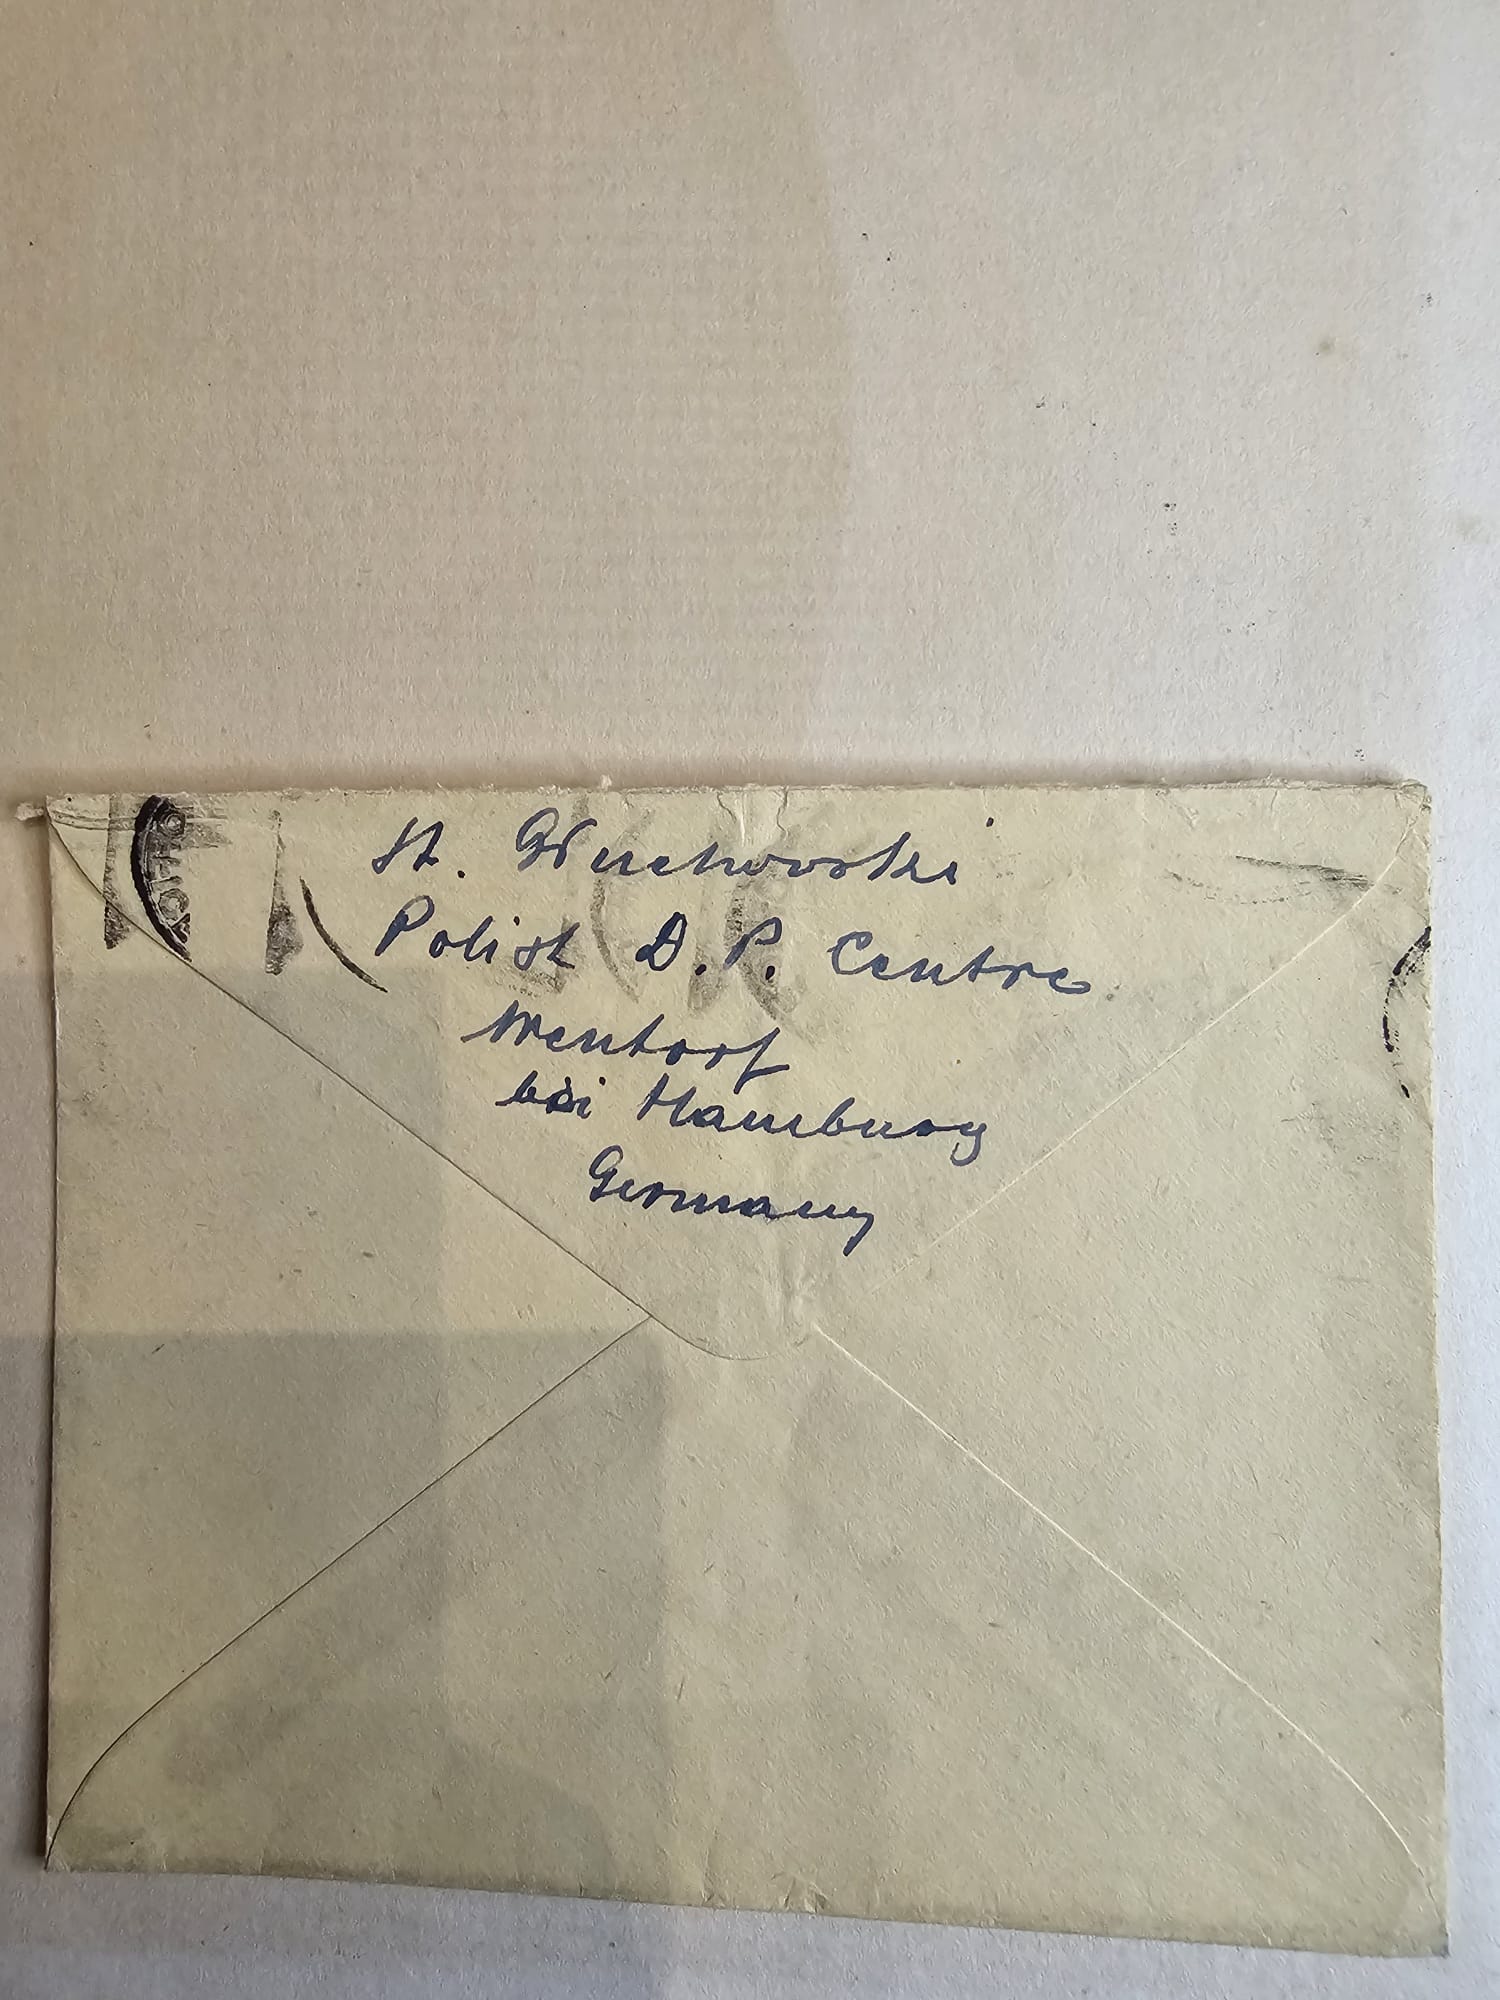 St. Głuchowski
Polish D.P. Centre
Wentorf
bei Hamburg
Germany